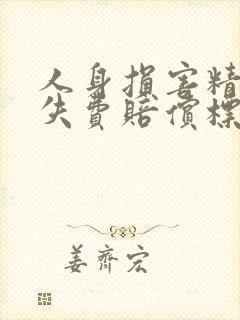 人身損害精
失費賠償標
姜齊宏